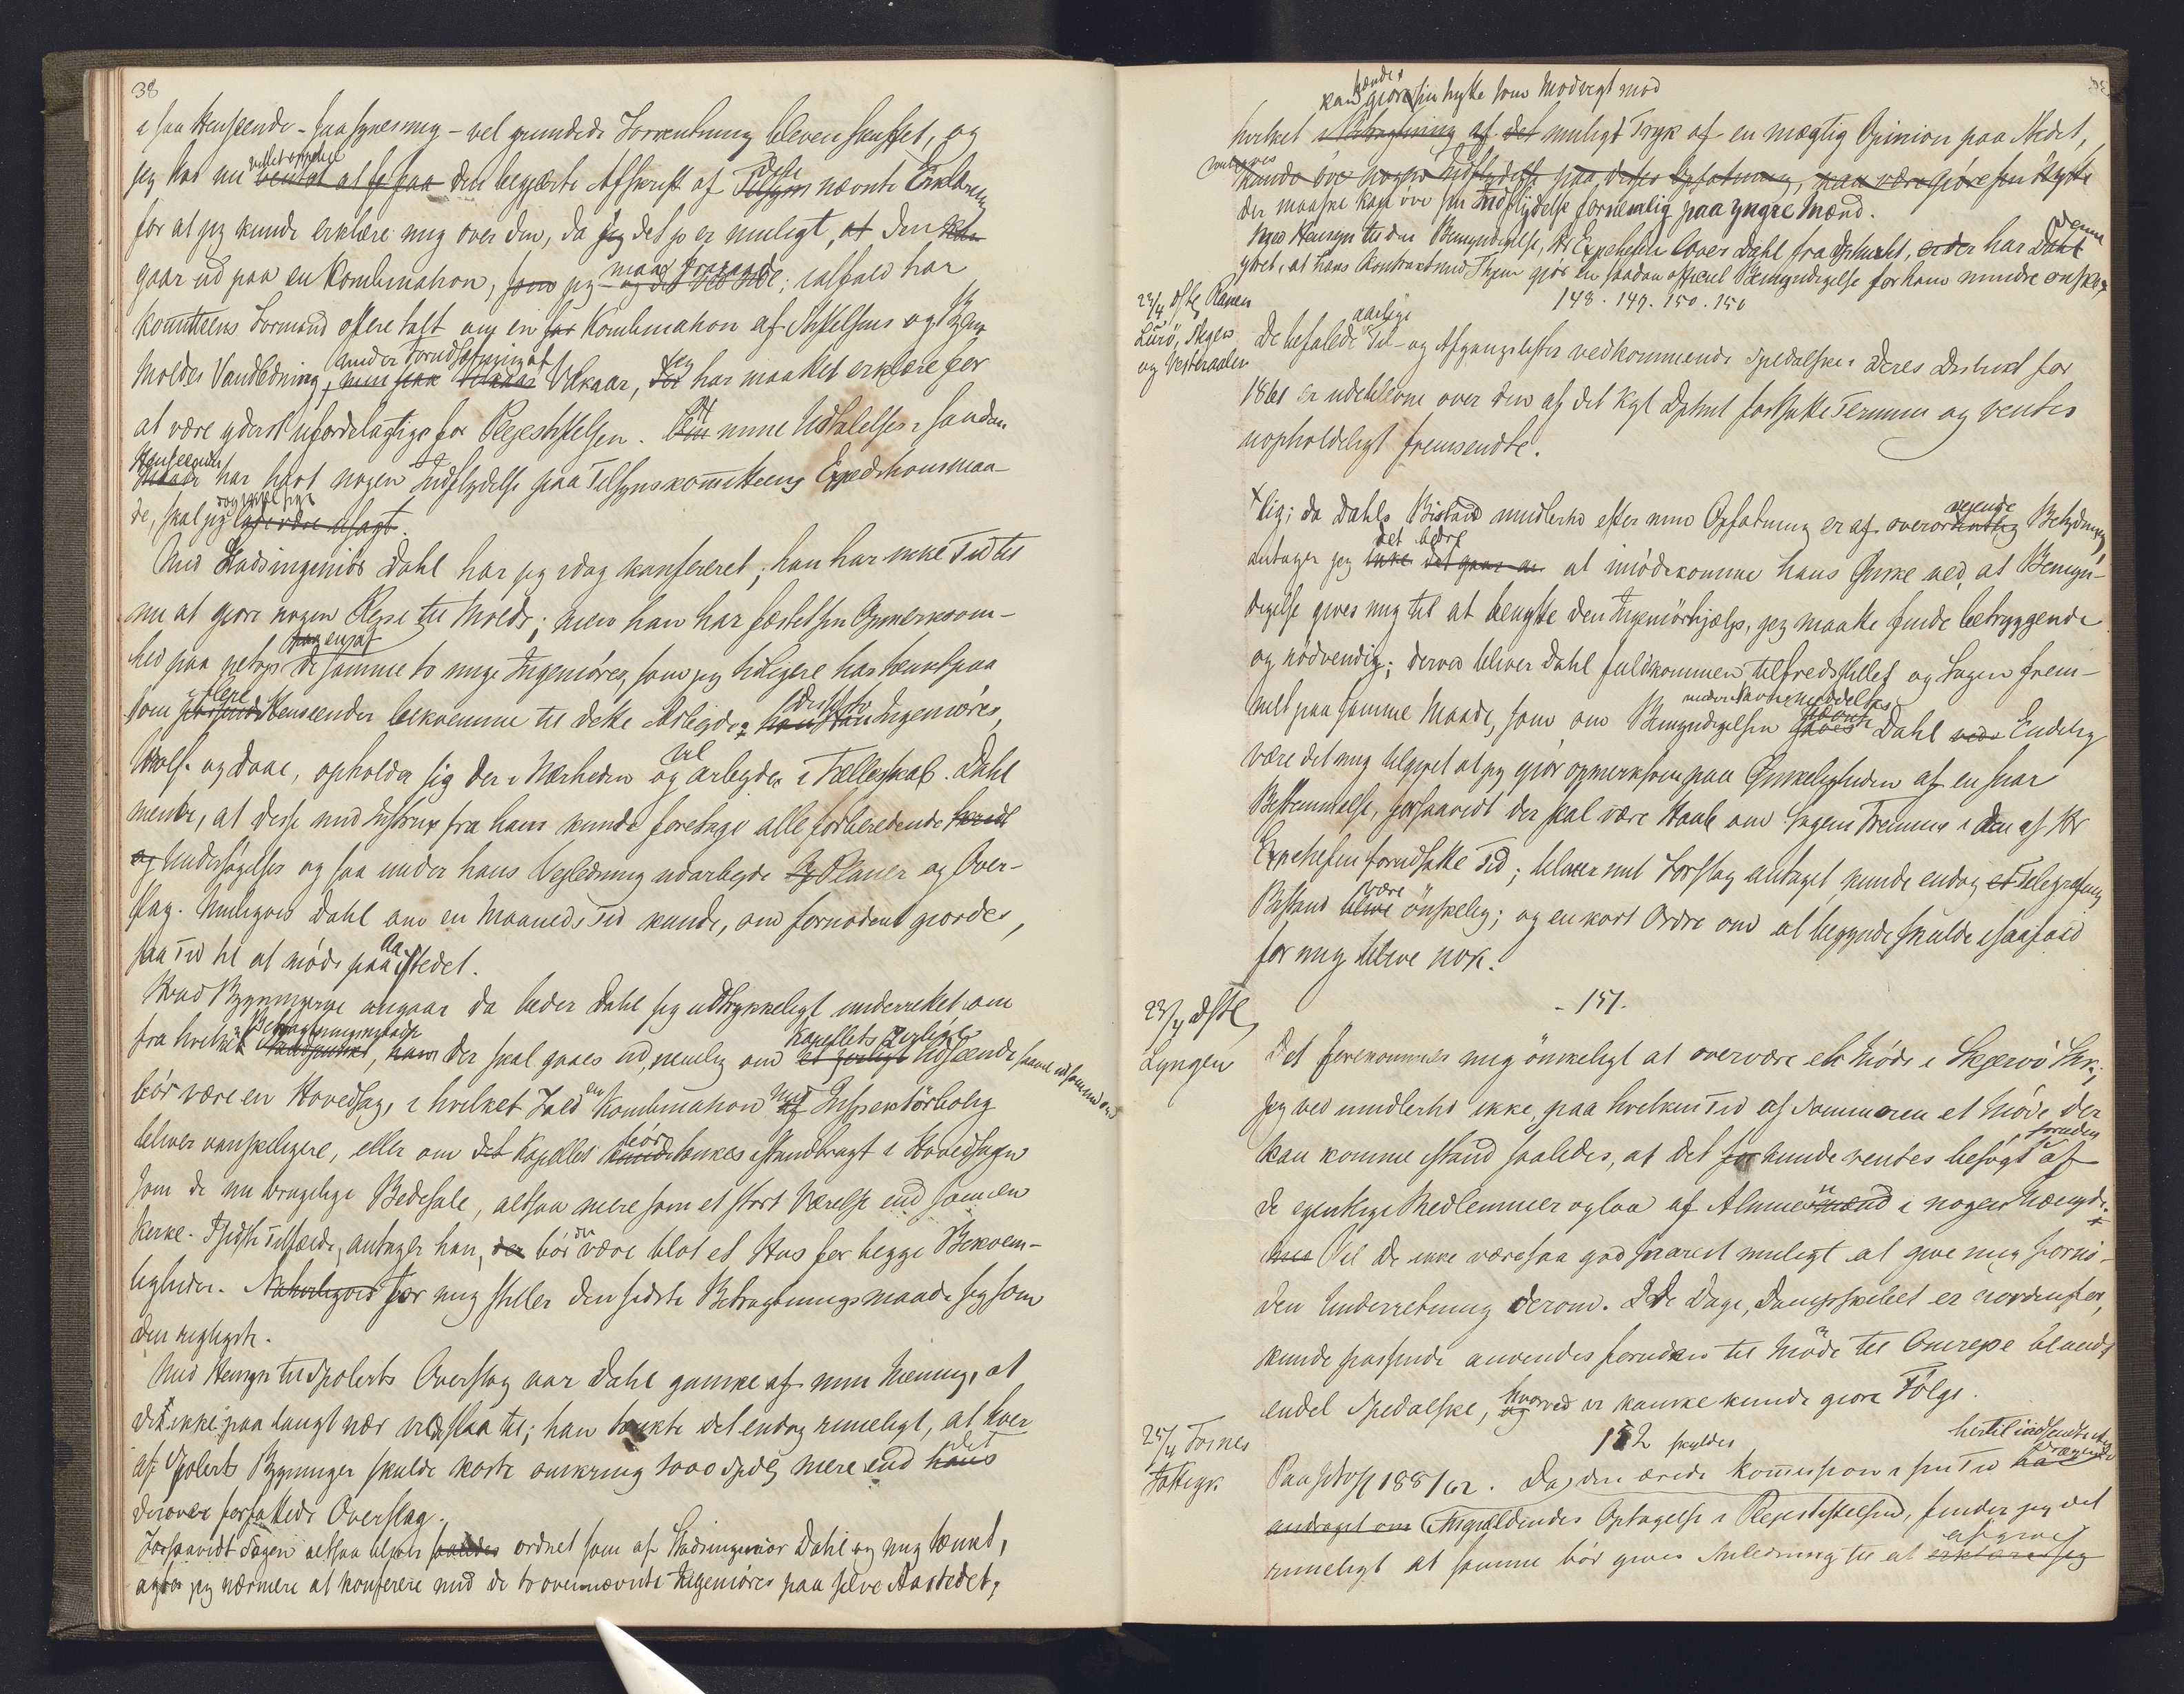 38
i saa Henseende - saa synes mig - vel grundede Forventning bleven skuffet, og
jeg har nu villet opsøge ventet at se paa den begjærte Afskrift af Tilsyns nævnte Erklæring
for at jeg kunde erklære mig over den, da jeg det jo er muligt, at den kan
gaar ud paa en Kombination, som jeg maa fraraade; ialfald har
komitteens Formand oftere talt om en Kombination af Stiftelsens og Byen
Moldes Vandledning, under Forudsætning af Vilkaar, jeg har maattet erklære for
at være yderst ufordelagtige for Plejestiftelsen. Om mine Udtalelser i saadan
Henseende har havt nogen Indflydelse paa Tilsynskomitteens Expeditionsmaa-
de, skal jeg lade være usagt.
Med Stadsingeniör Dahl har jeg idag konfereret; han har ikke Tid til
nu at gjøre nogen Rejse til Molde; men han har fæstet sin Opmerksom-
hed paa netop de samme to unge Ingeniörer, som jeg tidligere har tænkt paa
som i flere Henseender bekvemme til dette Arbejde; disse to Ingeniörer,
Wolf og Daae, opholder sig der i Nærheden og arbejder i Fællesskab. Dahl
mente, at disse med Instrux fra ham kunde foretage alle forberedende
og Undersögelser og saa under hans Vejledning udarbejde Planer og Over-
slag. Muligvis Dahl om en Maaneds Tid kunde, om fornödent gjordes,
faa Tid til at möde paa Aastedet.
Hvad Bygningerne angaar da beder Dahl sig udtrykkeligt underrettet om
fra hvilken Betragtningsmaade, der skal gaaes ud, nemlig om Kapellets kirkelige Udseende
bör være en Hovedsag, i hvilket Fald en Kombination med Inspektörbolig
bliver vanskeligere, eller om Kapellet bör tænkes istandbragt i Hovedsagen
som de nu brugelige Bedesale, altsaa mere som et stort Værelse end som en
Kirke. I sidste Tilfælde, antager han, bör der være blot et Hus for begge Bekvem-
meligheder. Naturligvis for mig stiller den sidste Betragtningsmaade sig som
den rigtigste.
Med Hensyn til Spolerts Overslag var Dahl ganske af min Mening, at
det ikke paa langt nær vil slaa til; han tænkte det endog rimeligt, at hver
af Spolerts Bygninger skulde koste omkring 1000 Spd mere end det
derover forfattede Overslag.
Forsaavidt Sagen altsaa bliver saaledes ordnet som af Stadsingeniör Dahl og mig tænkt,
agter jeg nærmere at konferere med de to ovennævnte Ingeniörer paa selve Aastedet,
kan gjøre sin Nytte som Modvegt mod
hvilket i Betragtning af det muligt Tryk af en mægtig Opinion paa Stedet,
kunde öve nogen Indflydelse paa deres Opfatning, kan være gjöre sin Nytte
der maaske kan öve sin Indflydelse fornemlig paa yngre Mænd.
Med Hensyn til den Bemyndigelse, Hr Expchefen lover Dahl fra Dptmtet, har denne
ytret, at hans Kontrakt med Byen gjör en saadan officiel Bemyndigelse for ham mindre önske-
148. 149. 150. 150
23/4 Dstl. Ranen
Lurö, Stegen
og Vesteraalen
De befalede aarlige Til- og Afgangslister vedkommende Spedalske i Deres Distrikt for
1861 er udeblevne over den af det Kgl Dptmt fastsatte Termin og ventes
uopholdeligt fremsendte.
lig; da Dahls Bistand imidlertid efter min Opfatning er af overvejende Betydning,
antager jeg det bedre at imödekomme hans Önske ved, at Bemyn-
digelse gives mig til at benytte den Ingeniörhjælp, jeg maatte finde betryggende
og nödvendig; derved bliver Dahl fuldkommen tilfredsstillet og Sagen frem-
met paa samme Maade, som om Bemyndigelsen meddeltes Dahl. Endelig
være det mig tilgivet at jeg gjör opmerksom paa Önskeligheden af en snar
Bestemmelse, forsaavidt der skal være Haab om Sagens Fremme i den af Hr
Expchefen forudsatte Tid; bliver mit Forslag antaget, kunde endog et Telegrafens
Bistand være önskelig; og en kort Ordre om at begynde skulde isaafald
for mig blive nok.
- 151.
23/4 Dstl,
Lyngen
Det forekommer mig önskeligt at overvære et Möde i Skjervö Sk.;
jeg ved imidlertid ikke paa hvilken Tid af Sommeren et Möde der
kan komme istand saaledes, at det kunde ventes besögt foruden af
de egentlige Medlemmer ogsaa af Almuesmænd i nogen Mængde.
Vil De ikke være saa god snarest muligt at give mig fornö-
den Underretning derom. De Dage, Dampskibet er nordenfor,
kunde passende anvendes foruden til Möde til Omrejse blandt
endel Spedalske, hvorved vi kanske kunde gjöre Fölge.
152
25/4 Fosnes
Fattigk.
Paa Skr 188/62. Da den ærede Kommission i sin Tid
andraget om Angjældendes Optagelse i Plejestiftelsen, finder jeg det
rimeligt at samme bör gives Anledning til at erklære sig